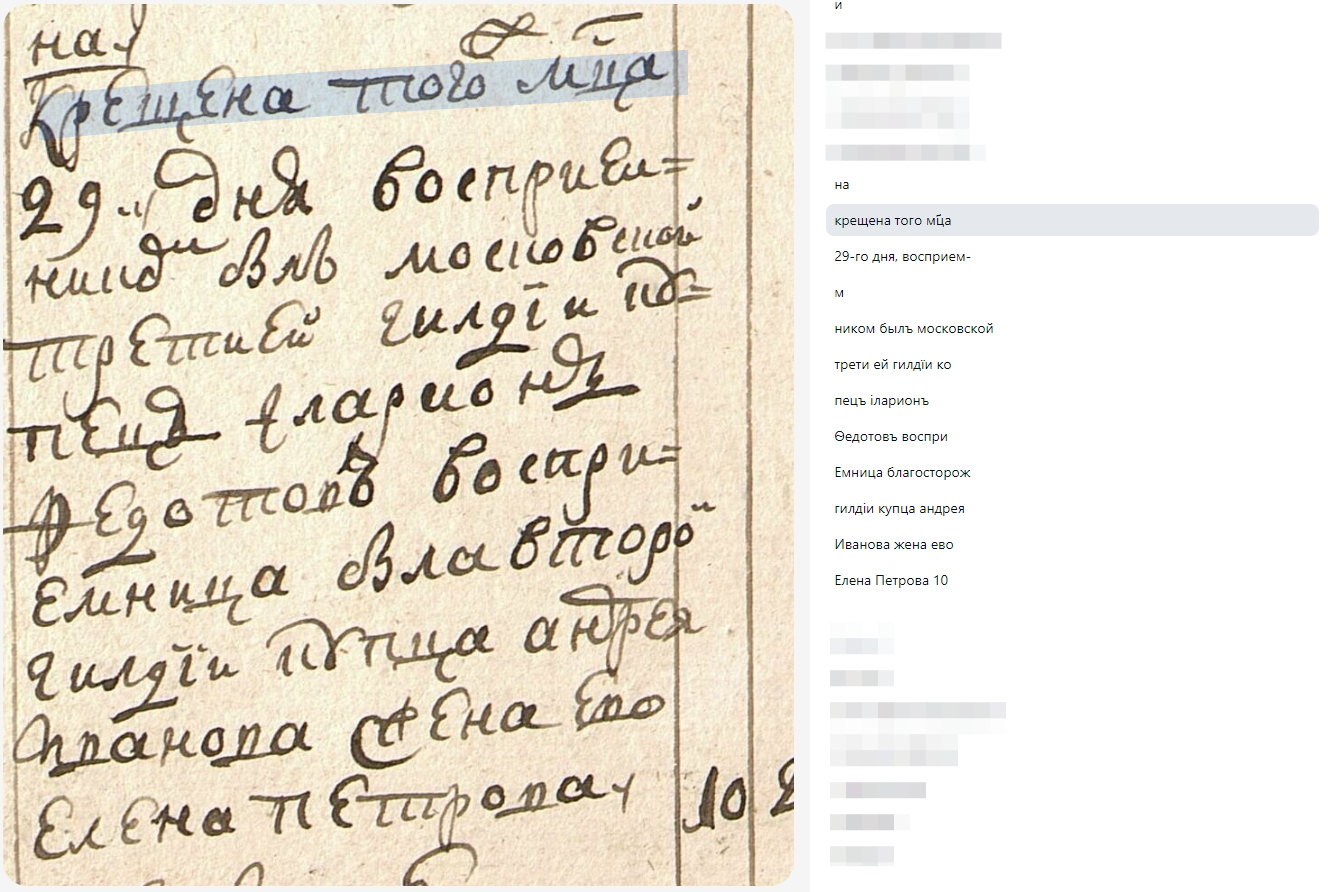 на
крещена того мца
29. дня восприем=
никъ былъ московской
третией гилдїи ку=
пецъ іларионъ
Ѳедотовъ воспри=
емница была второй
гилдїи купца андрея
иванова жена ево
елена петрова 10
и
на
крещена того мца
29-го дня, восприем-
м
ником былъ московской
трети ей гилдїи ко
пецъ iларионъ
Ѳедотовъ воспри
Емница благосторож
гилдiи купца андрея
Иванова жена ево
Елена Петрова 10